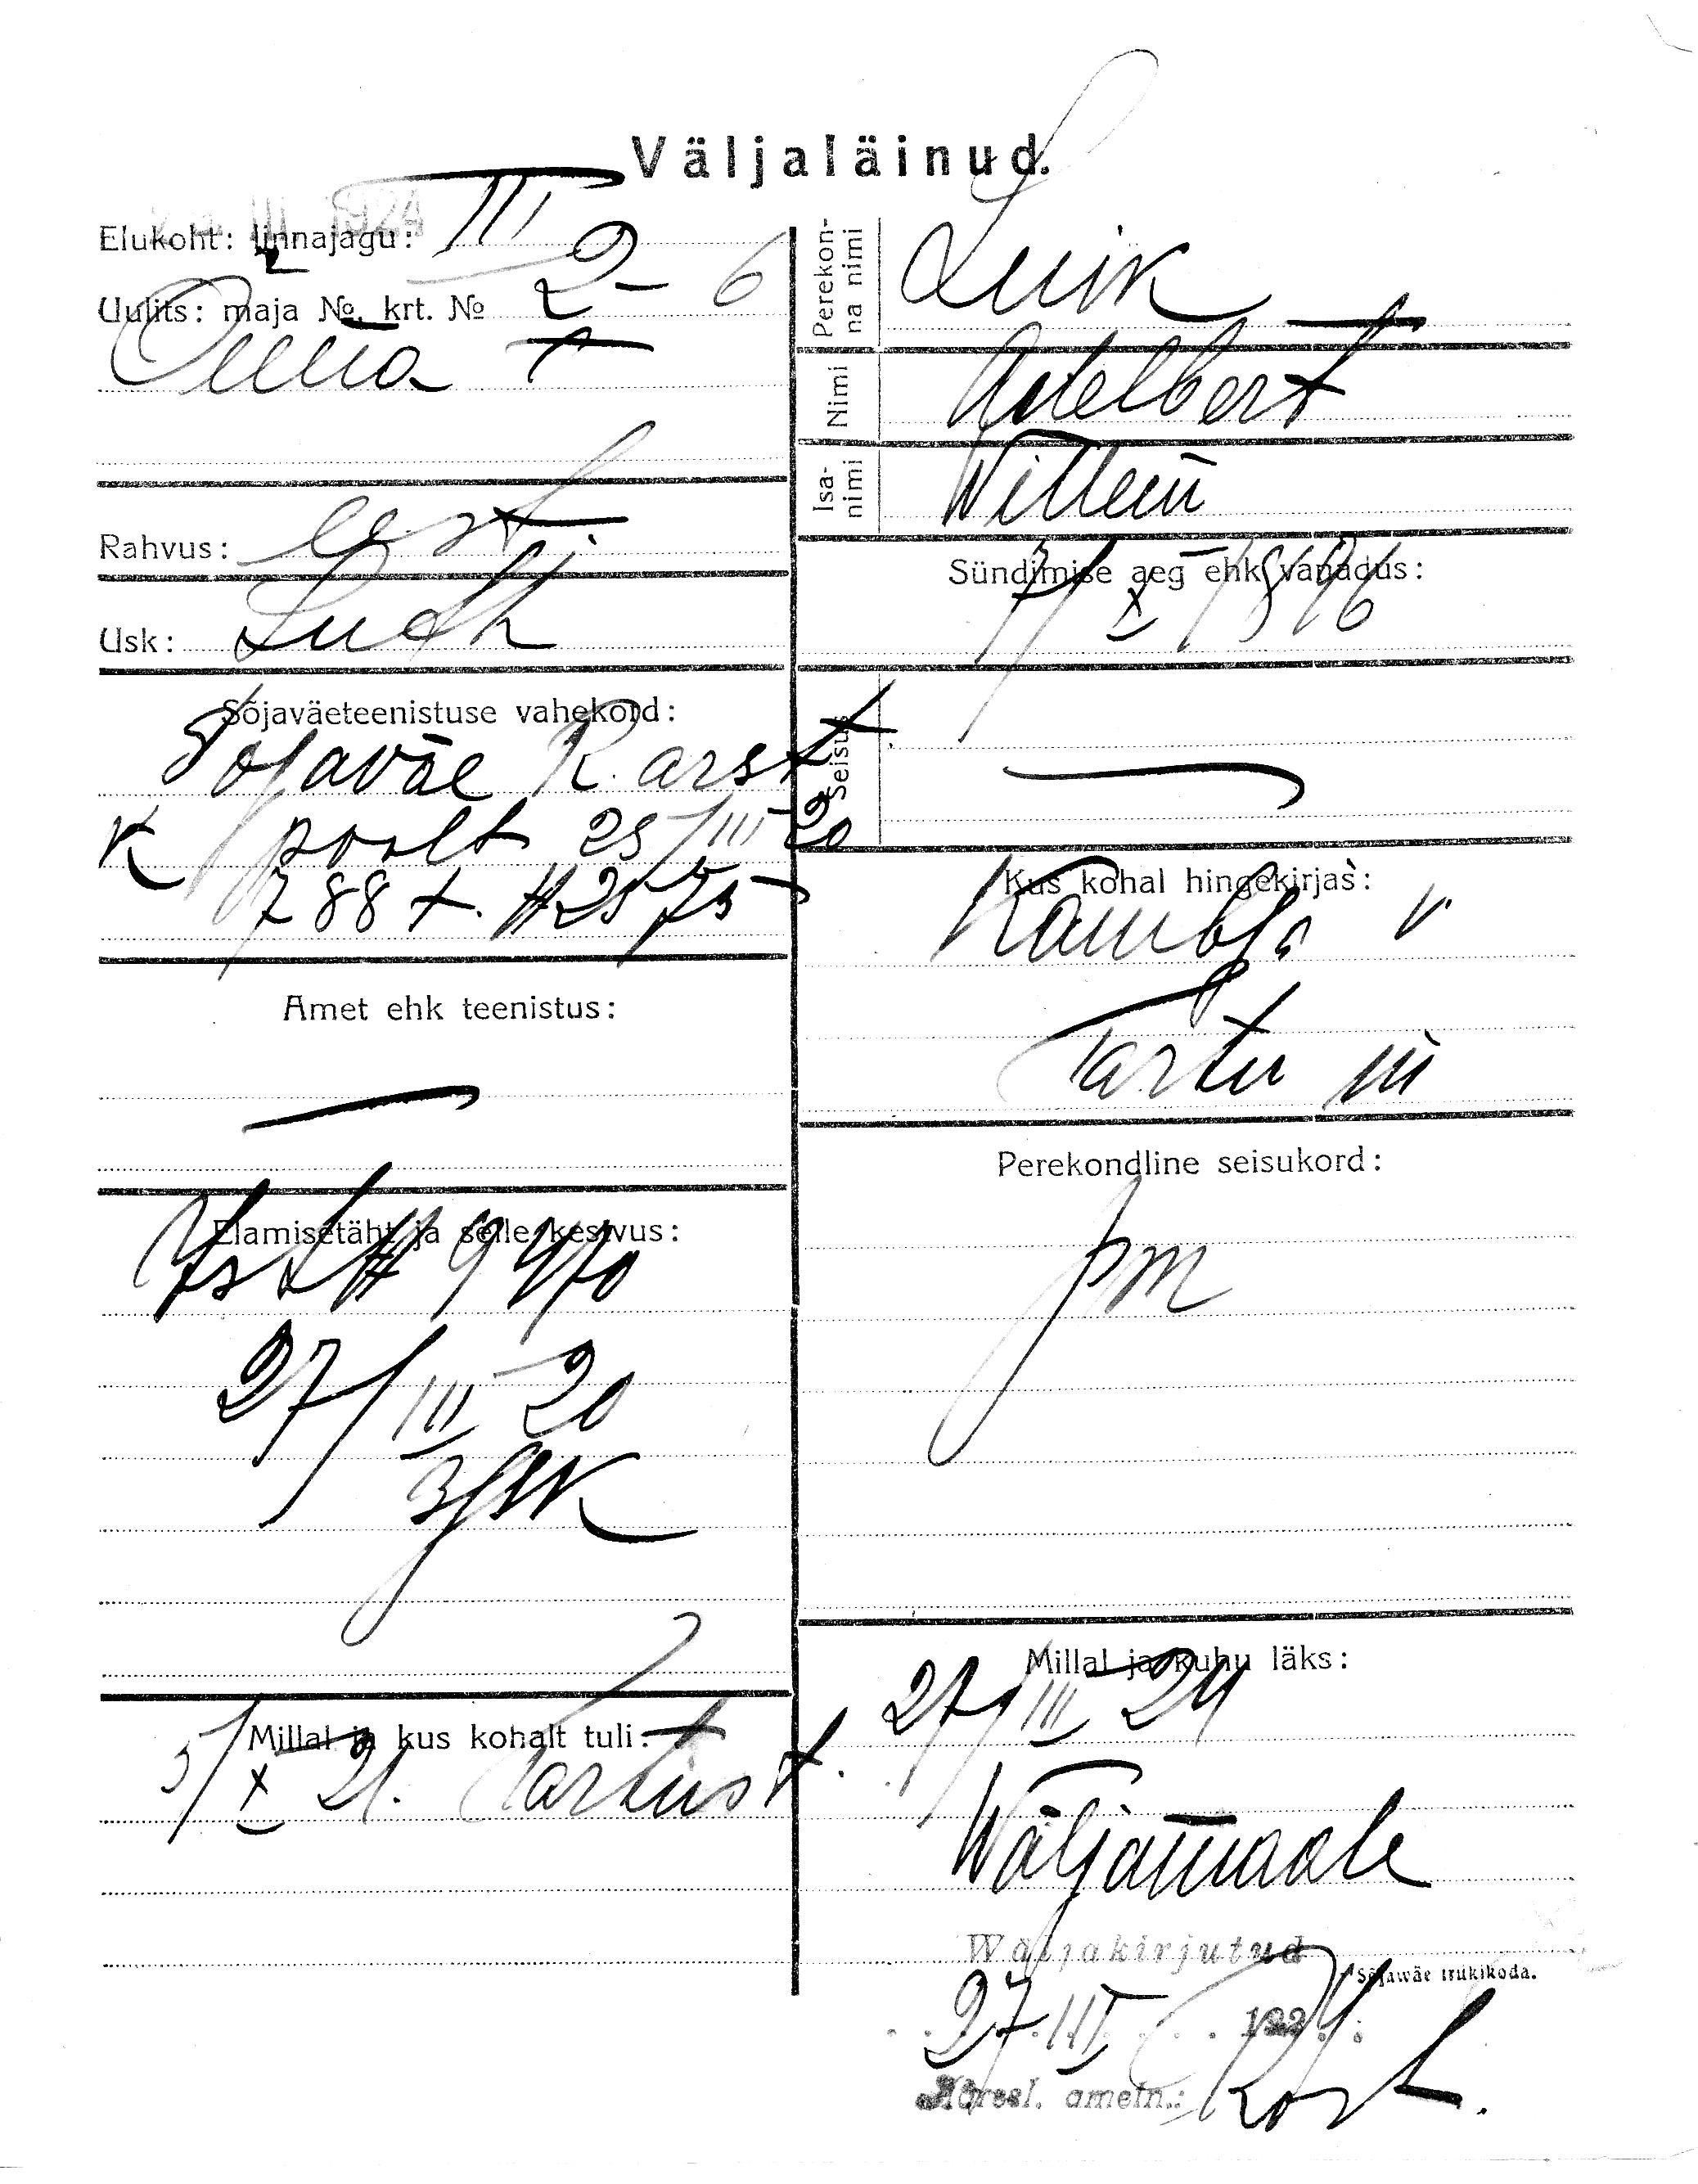 Väljaläinud.
III 1924
Elukoht: linnajagu: III
Uulits: maja №, krt. № 2 – 6
Rahvus: eest
Usk: Luth
Sõjaväeteenistuse vahekord:
Sõjaväe K. arst
k poolt 25/III 20
788 t. # 2575
Amet ehk teenistus:
Elamisetäht ja selle kestvus:
27/III 20
Millal ja kus kohalt tuli:
5/X 21. Tartust.
Perekonna nimi Luik
Nimi Adelbert
Isanimi Willem
Sündimise aeg ehk vanadus:
7/X 1896
Seisus
Kus kohal hingekirjas:
Kambja v
Tartu m
Perekondline seisukord:
pm
Millal ja kuhu läks:
27/III 24
Wäljamaale
Wäljakirjutud
Sõjawäe trükikoda.
27.III 1924.
ametn.: